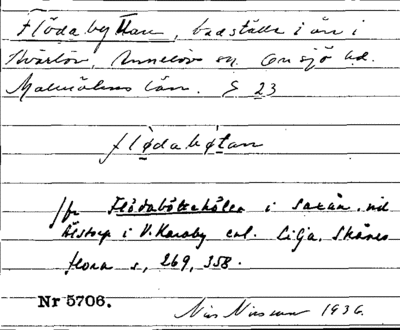 Flödabyttan, badställe i ån i
Kvärlöv, Annelövs sn. Onsjö hd.
Malmöhus län. S 23
flödabøtan
jfr Flödaböttehålen i Saxån, vid
Ålstorp i V. Karaby enl. Lilja, Skånes
flora s, 269, 358.
Nr 5706.
Nils Nilsson 1936.